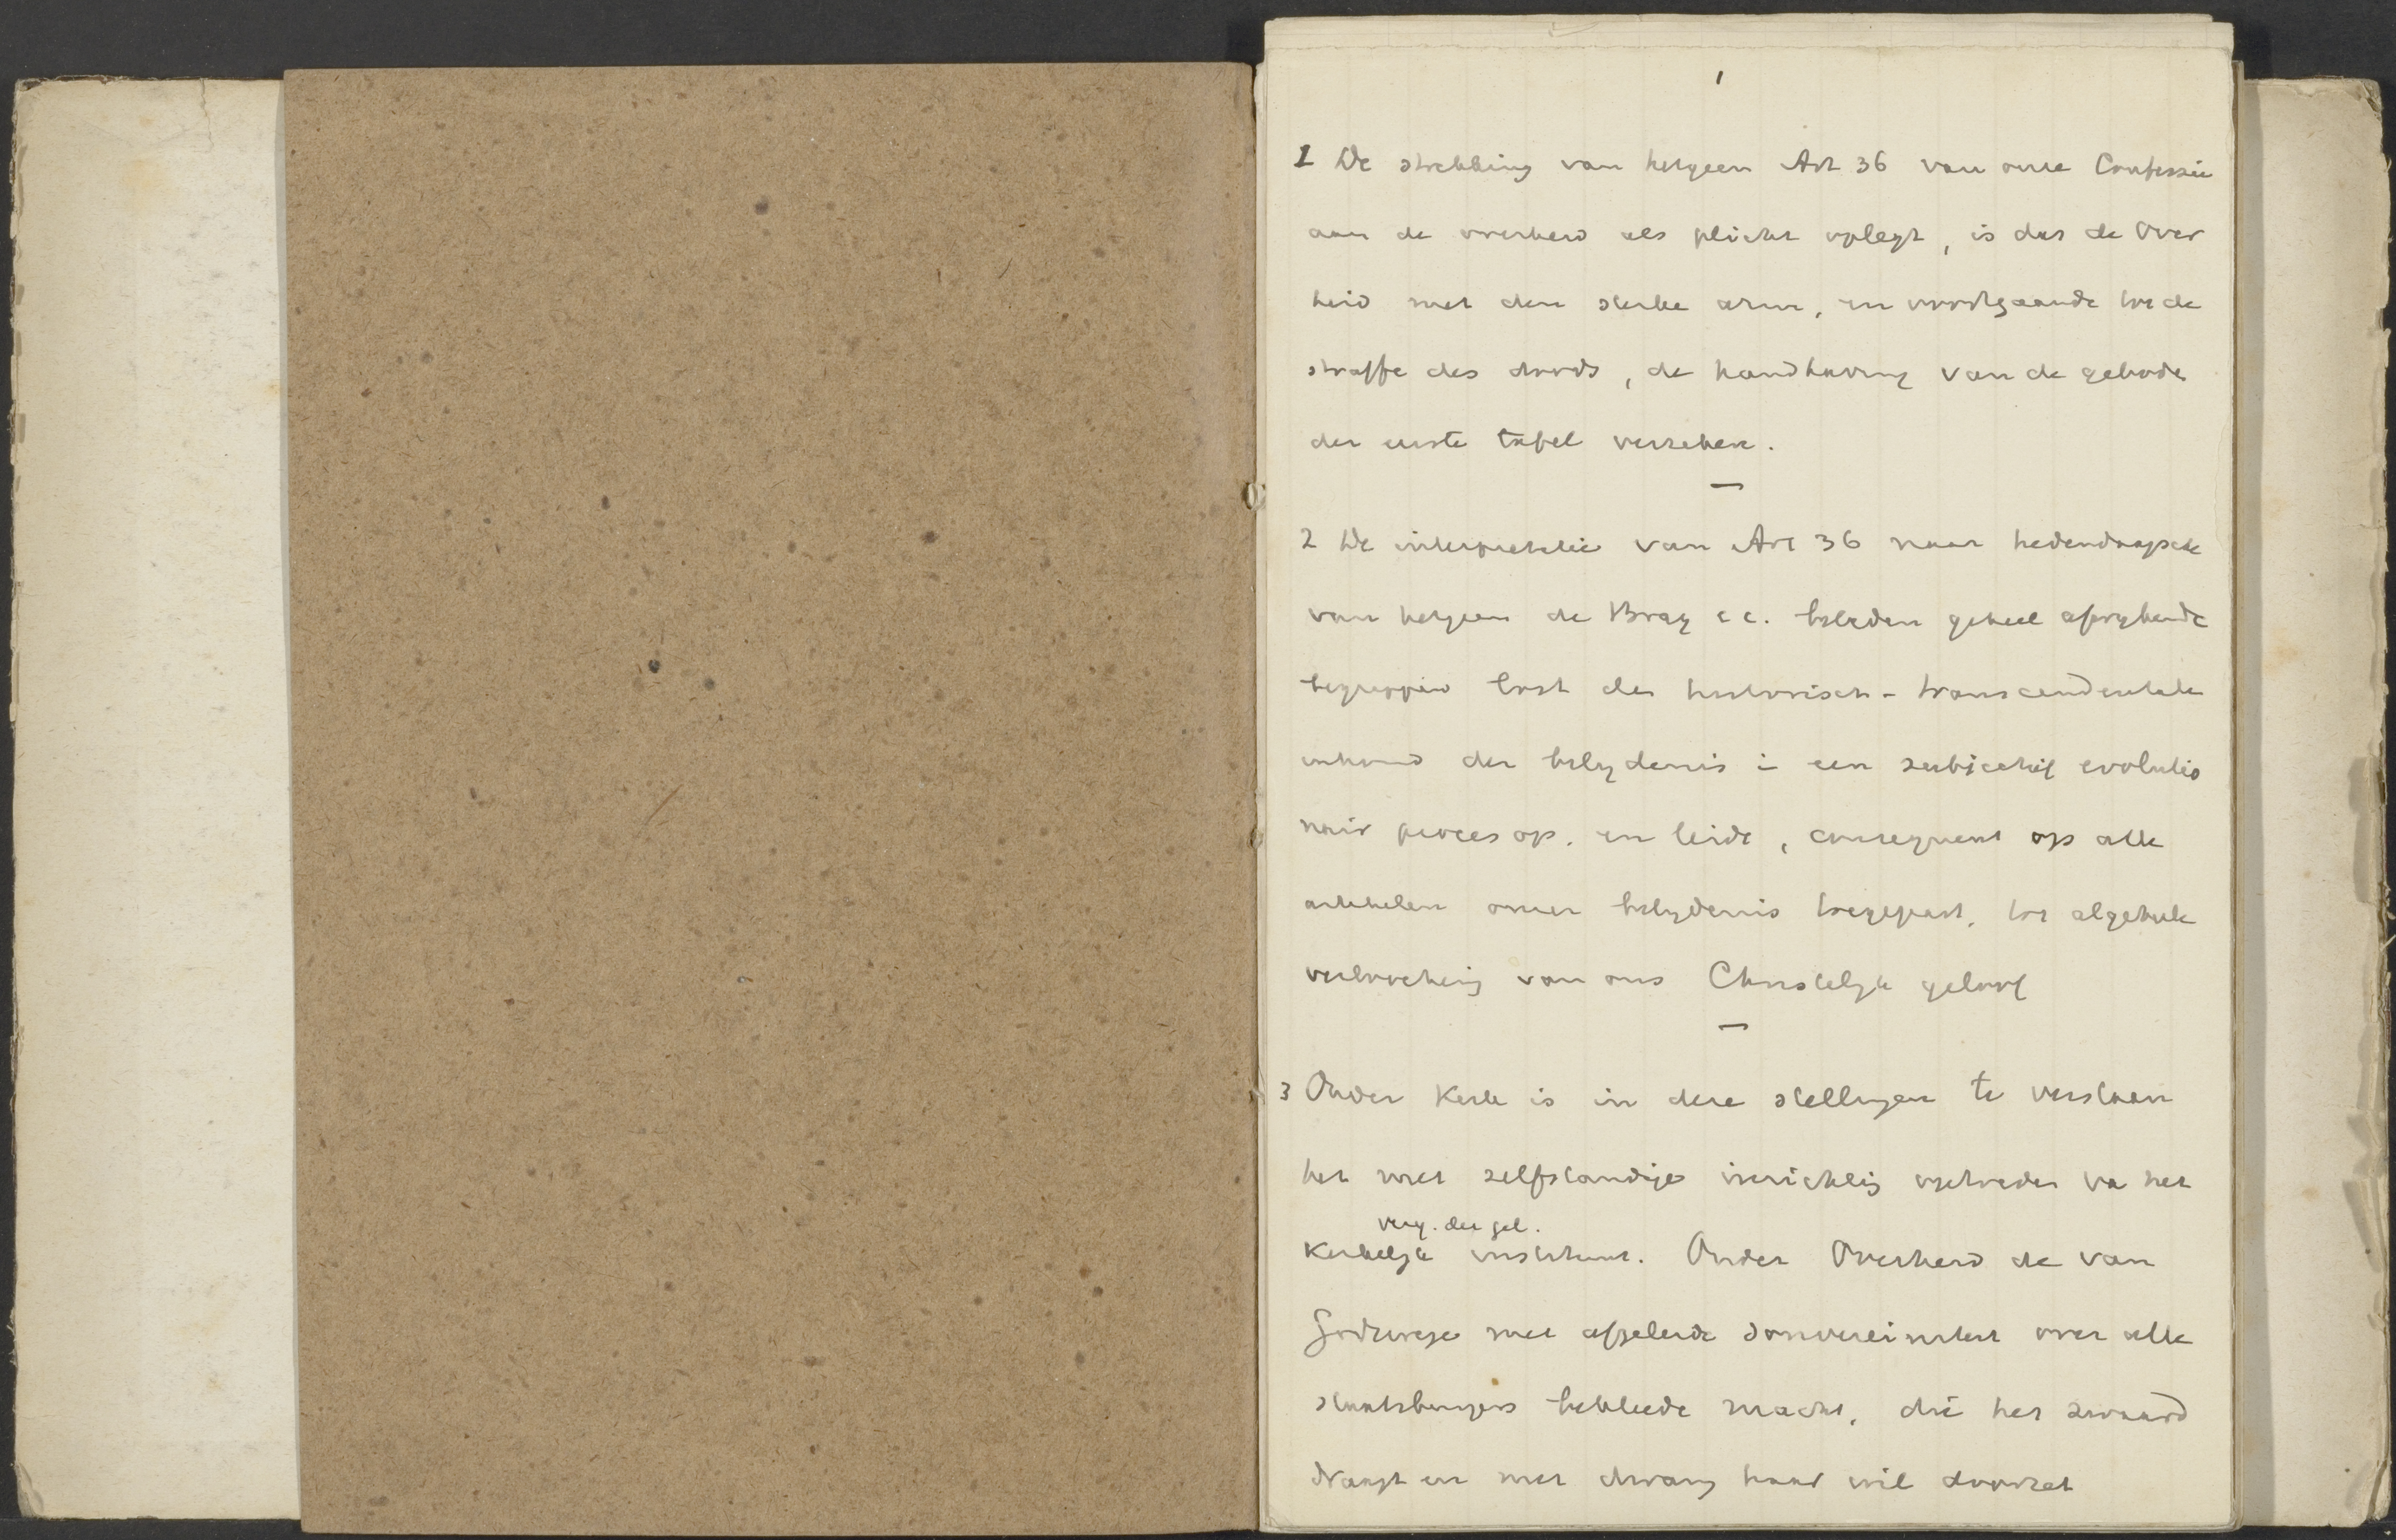 1
1 De strekking van hetgeen Art 36 van onze Confessie
aan de overheid als plicht oplegt, is dat de Over
heid met den sterke arm, en voortgaande tot de
straffe des doods, de handhaving van de geboden
der eerste tafel verzekere.
—
2 De interpretatie van Art 36 naar hedendaagsche
van hetgeen de Bray c.c. beleden geheel afwykende
begrippen lost den historisch-transcendentale
inhoud der belydenis in een subjectief evolutio
nair proces op, en leidt, consequent op alle
artikelen onzer belydenis toegepast, tot algeheele
verloochening van ons Christelyk geloof
—
3 Onder Kerk is in deze stellingen te verstaan
het met zelfstandige inrichting optreden va het
verg. der gel.
Kerkelyk instituut. Onder Overheid de van
Godswege met afgeleide souvereiniteit over alle
staatsburgers bekleede macht, die het zwaard
draagt en met dwang haar wil doorzet